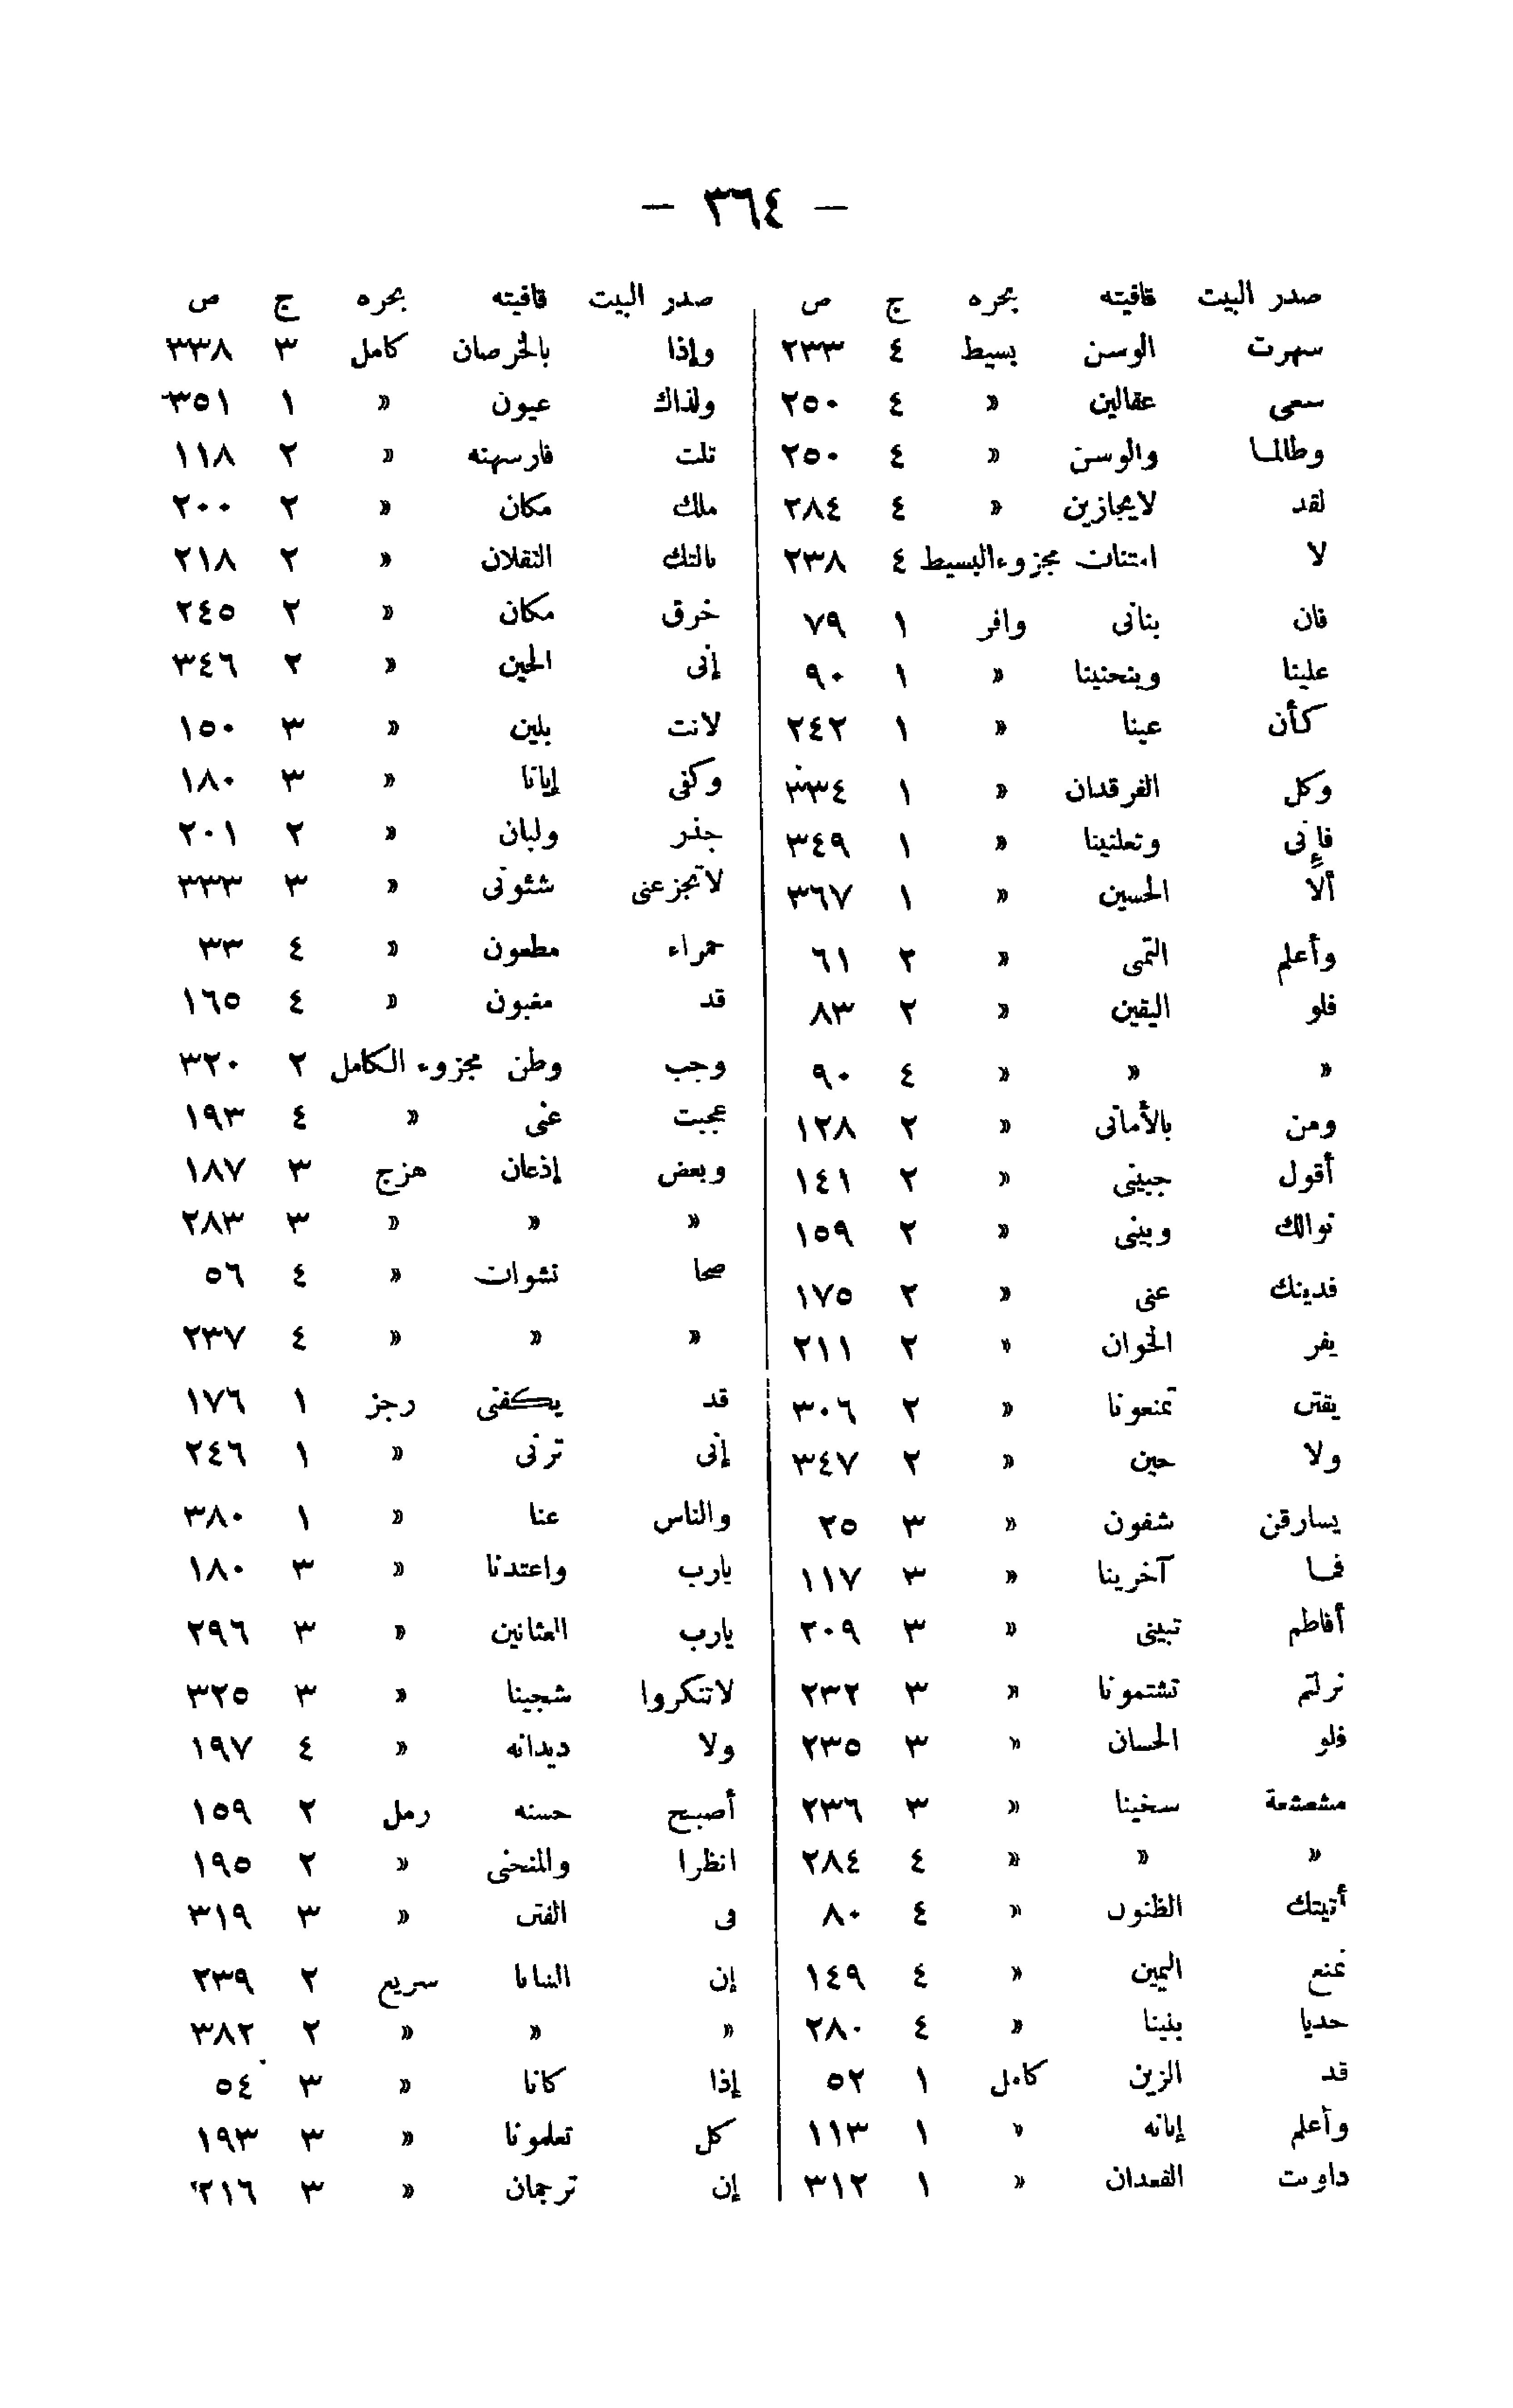 — ٣٦٤ —
صدر البيت قافيته بحره ج ص
سهرت الوسن بسيط ٤ ٢٣٣
سعى عقالين » ٤ ٢٥٠
وطالما والوسن » ٤ ٢٥٠
لقد لايجازين » ٤ ٢٨٤
لا امتنات مجزوءالبسيط ٤ ٢٣٨
فان بنانى وافر ١ ٧٩
علينا وينحنينا » ١ ٩٠
كأن عينا » ١ ٢٤٢
وكل الفرقدان » ١ ٣٣٤
فإنى وتعلنينا » ١ ٣٤٩
ألا الحسين » ١ ٣٦٧
وأعلم التمى » ٢ ٦١
فلو اليقين » ٢ ٨٣
» » » ٤ ٩٠
ومن بالأمانى » ٢ ١٢٨
أقول جبينى » ٢ ١٤١
نوالك وبينى » ٢ ١٥٩
فدينك عنى » ٢ ١٧٥
يفر الخوان » ٢ ٢١١
يقتى تمنعونا » ٢ ٣٠٦
ولا حين » ٢ ٣٤٧
يسارقن شفون » ٣ ٢٥
فما آخرينا » ٣ ١١٧
أفاطم تبينى » ٣ ٢٠٩
نزلتم تشتمونا » ٣ ٢٣٢
فلو الحسان » ٣ ٢٣٥
مشعشعة سخينا » ٣ ٢٣٦
» » » ٤ ٢٨٤
أتيتك الظنون » ٤ ٨٠
تمنع اليمين » ٤ ١٤٩
حديا بنينا » ٤ ٢٨٠
قد الزين كامل ١ ٥٢
وأعلم إبانه » ١ ١١٣
داويت القعدان » ١ ٣١٢
صدر البيت قافيته بحره ج ص
وإذا بالخرصان كامل ٣ ٣٣٨
ولذاك عيون » ١ ٣٥١
تلت فارسهنه » ٢ ١١٨
ملك مكان » ٢ ٢٠٠
بالتك الثقلان » ٢ ٢١٨
خرق مكان » ٢ ٢٤٥
إنى الحين » ٢ ٣٤٦
لانت بلين » ٣ ١٥٠
وكفى إيانا » ٣ ١٨٠
جذر ولبان » ٢ ٢٠١
لاتجزعنى شئونى » ٣ ٣٣٣
حمراء مطعون » ٤ ٣٣
قد مغبون » ٤ ١٦٥
وجب وطن مجزوء الكامل ٢ ٣٢٠
عجبت عنى » ٤ ١٩٣
وبعض إذعان هزج ٣ ١٨٧
» » » ٣ ٢٨٣
صحا نشوات » ٤ ٥٦
» » » ٤ ٢٣٧
قد يكفنى رجز ١ ١٧٦
إنى ترنى » ١ ٢٤٦
والناس عنا » ١ ٣٨٠
يارب واعتدنا » ٣ ١٨٠
يارب العثانين » ٣ ٢٩٦
لاتنكروا شجينا » ٣ ٣٢٥
ولا ديدانه » ٤ ١٩٧
أصبح حسنه رمل ٢ ١٥٩
انظرا والمنحنى » ٢ ١٩٥
فى الفتى » ٣ ٣١٩
إن سريع ٢ ٢٣٩
» » » ٢ ٣٨٢
إذا كانا » ٣ ٥٤
كل تعلمونا » ٣ ١٩٣
إن ترجمان » ٣ ٢١٦